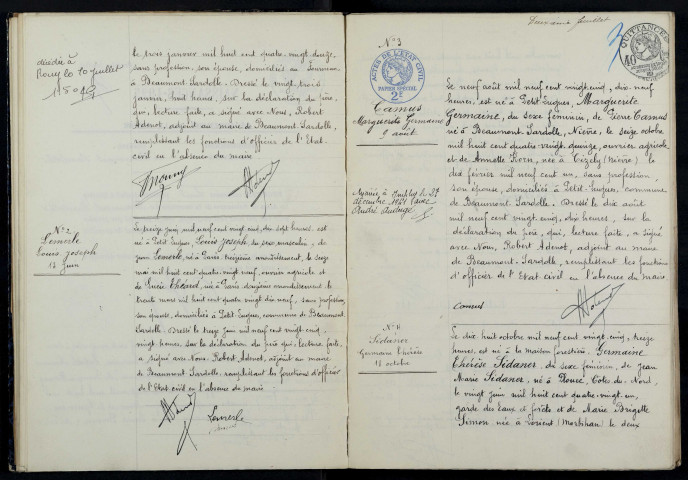 décédée à
Rouy le 10 juillet
le trois janvier mil huit cent quatre-vingt-douze,
sans profession, son épouse, domiciliés au
à Beaumont Sardolle. Dressé le vingt trois
janvier, huit heures, sur la déclaration du père,
qui, lecture faite, a signé avec Nous, Robert
Adenot, adjoint au maire de Beaumont-Sardolle,
remplissant les fonctions d'officier de l'Etat
civil en l'absence du maire
N° 2
Lemerle
Louis Joseph
13 Juin
Le treize juin mil neuf cent vingt cinq, dix sept heures, est
né à Petit Lugues, Louis Joseph du sexe masculin, de
Jean Lemerle, né à Paris treizième arrondissement, le seize
mai mil huit cent quatre-vingt-neuf, ouvrier agricole et
de Lucie, née à Paris arrondissement le
trente mars mil huit cent quatre vingt dix-neuf, sans profession,
son épouse, domiciliés à Petit-Lugues, commune de Beaumont
Sardolle. Dressé le treize juin mil neuf cent vingt cinq
vingt heures, sur la déclaration du père qui, lecture faite,
a signé avec Nous, Robert Adenot, adjoint au maire
de Beaumont Sardolle, remplissant les fonctions d'officier
de l'Etat civil en l'absence du maire
Lemerle
N° 3
ACTES DE L'ETAT CIVIL
PAPIER SPECIAL
2F
Camus
Marguerite Germaine
9 août
Mariée à Imphy le 27
décembre 1941 avec
André
Deuxième feuillet
3
QUITTANCES
40
Le neuf août mil neuf cent vingt cinq, dix-neuf
heures, est née à Petit Lugues, Marguerite
Germaine, du sexe féminin, de Pierre Camus
né à Beaumont Sardolle, Nièvre, le seize octobre
mil huit cent quatre vingt quinze, ouvrier agricole
et de Annette, née à Cizely (Nièvre) le
dix février mil neuf cent un, sans profession,
son épouse, domiciliés à Petit-Lugues, commune
de Beaumont-Sardolle. Dressé le dix août
mil neuf cent vingt cinq, dix heures, sur la
déclaration du père, qui, lecture faite, a signé
avec Nous, Robert Adenot, adjoint au maire
de Beaumont-Sardolle, remplissant les fonctions
d'officier de l'Etat civil en l'absence du maire
Camus
N° 4
Sédaner
Germaine Thérèse
18 octobre
Le dix huit octobre mil neuf cent vingt cinq, treize
heures, est née à la maison forestière, Germaine
Thérèse Sédaner, du sexe féminin, de Jean
Marie Sédaner, né à, Côtes du Nord,
le vingt juin mil huit cent quatre-vingt-un,
garde des Eaux et forêts et de Marie Brigitte
Simon, née à Lorient (Morbihan) le deux